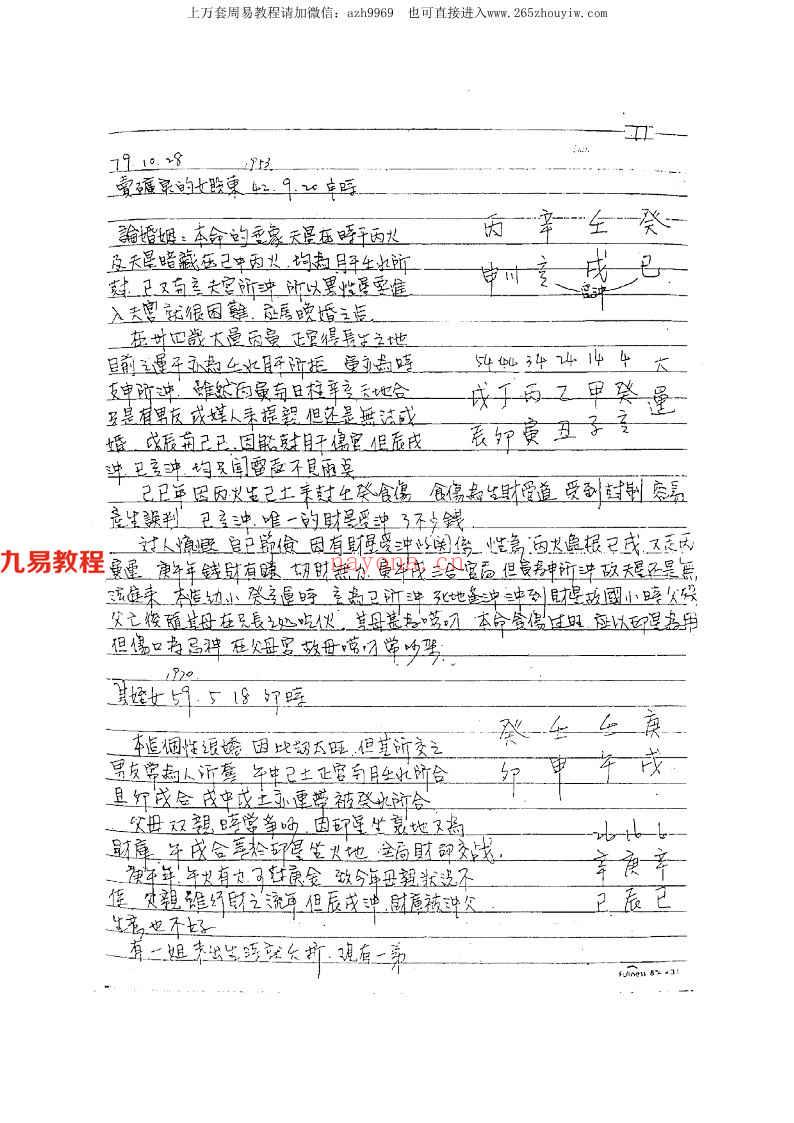 上万套周易教程请加微信：azh9969 也可直接进入www.265zhouyiw.com
79.10.28 1953
賣礦泉的女股東 42.9.20 申時
論婚姻：本命的 夫星在時干丙火
丙 辛 壬 癸
及夫星暗藏在巳中丙火，均為月干壬水所
申 亥 戌 巳
尅，巳又為亥夫宮所沖，所以男性星要進
入夫宮就很困難，應為晚婚之造
在卅四歲大運丙寅，正官得長生之地
目前之運干亦為壬水月干所尅，寅亦為時
54 44 34 24 14 4 大
支申所沖，雖然丙寅與日柱辛亥天地合
戊 丁 丙 乙 甲 癸 運
只是有男友或媒人來提親，但还是無法成
辰 卯 寅 丑 子 亥
婚，戊辰 己巳，因能尅月干傷官，但辰戌
沖，巳亥沖，均只聞雷 不見雨 
己巳年因丙火生己土來尅壬癸食傷，食傷為生財管道，受到尅制，容易
產生誤判，巳亥沖，唯一的財星受沖，了不少錢
討人 自己節儉，因有財星受沖的関係，性 丙火無根巳戌，又
寅運，庚午年錢財有賺，劫財無 庚午戌三合官局，但寅為申所沖，故夫星还是無
法進來，本造幼小癸亥運時，亥為巳所沖，死地逢沖，沖到財星，故國小時父歿
父亡後隨其母在兄長之処吃伙，其母甚為嘮叨，本命食傷过旺，應以印星為用
但傷官為忌神，在父母宮，故母嘮叨常吵架
1970
其姪女 59.5.18 卯時
癸 壬 壬 庚
本造個性很嬌，因比劫太旺，但其所交之
卯 申 午 戌
男友常為人所奪，午中己土正官與月壬水所合
且卯戌合，戌中戊土亦連帶被癸水所合
父母双親時常爭吵，因印星坐衰地又為
26 16 6
財庫，午戌合等於印星坐火地，全局財印交战
辛 庚 辛
庚午年，午火有力可尅庚金，故今年母親狀況不
巳 辰 巳
佳，父親雖行財之流年，但辰戌沖，財庫被沖，父
生意也不好
有一姐未出生 就 折，現有一弟
九易教程
nayona.cn
Fullness